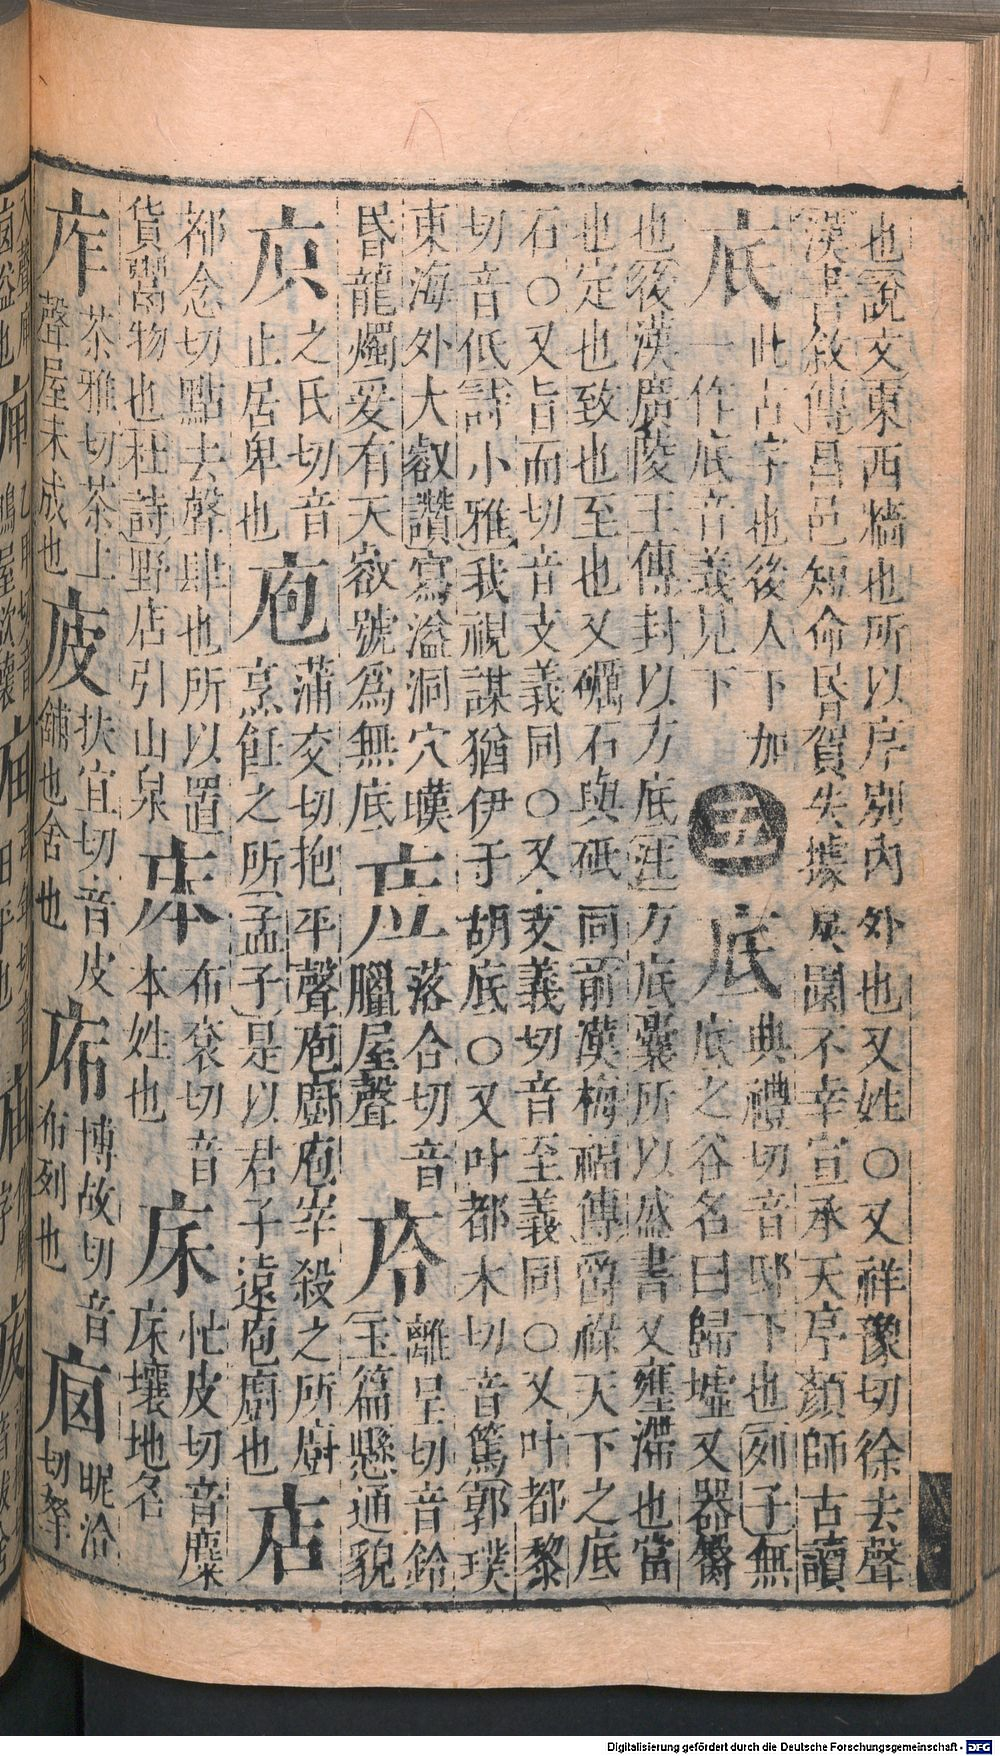 也說文東西牆也所以序別內外也又姓○又祥豫切徐去聲
漢書敘傳昌邑不幸宣承天序顏師古讀
底此古字也後人下加一作底音義見下
五
底典禮切音邸下也列子無底之谷名曰歸墟又器
也後漢廣陵王傳封以方底注方底囊所以盛書又壅滯也當
也定也致也至也又礪石與砥同前漢梅福傳爵祿天下之底
石○又旨而切音支義同○又支義切音至義同○又叶都黎
切音低詩小雅我視謀猶伊于胡底○又叶都木切音篤郭璞
東海外大壑讚寫溢洞穴嘆
昏龍燭爰有天嶽號為無底
㡴落合切音臘屋聲
㡵離呈切音鈴玉篇懸通貌
㡳之氏切音止居卑也
庖蒲交切抱平聲庖廚庖宰殺之所廚烹飪之所孟子是以君子遠庖廚也
店都念切點去聲肆也所以置貨鬻物也杜詩野店引山泉
布袞切音本姓也
床忙皮切音糜床壤地名
庌茶雅切茶上聲屋未成也
㡷扶宜切音皮舖也舍也
㡱博故切音布列也
昵洽切
Digitalisierung gefördert durch die Deutsche Forschungsgemeinschaft - DFG